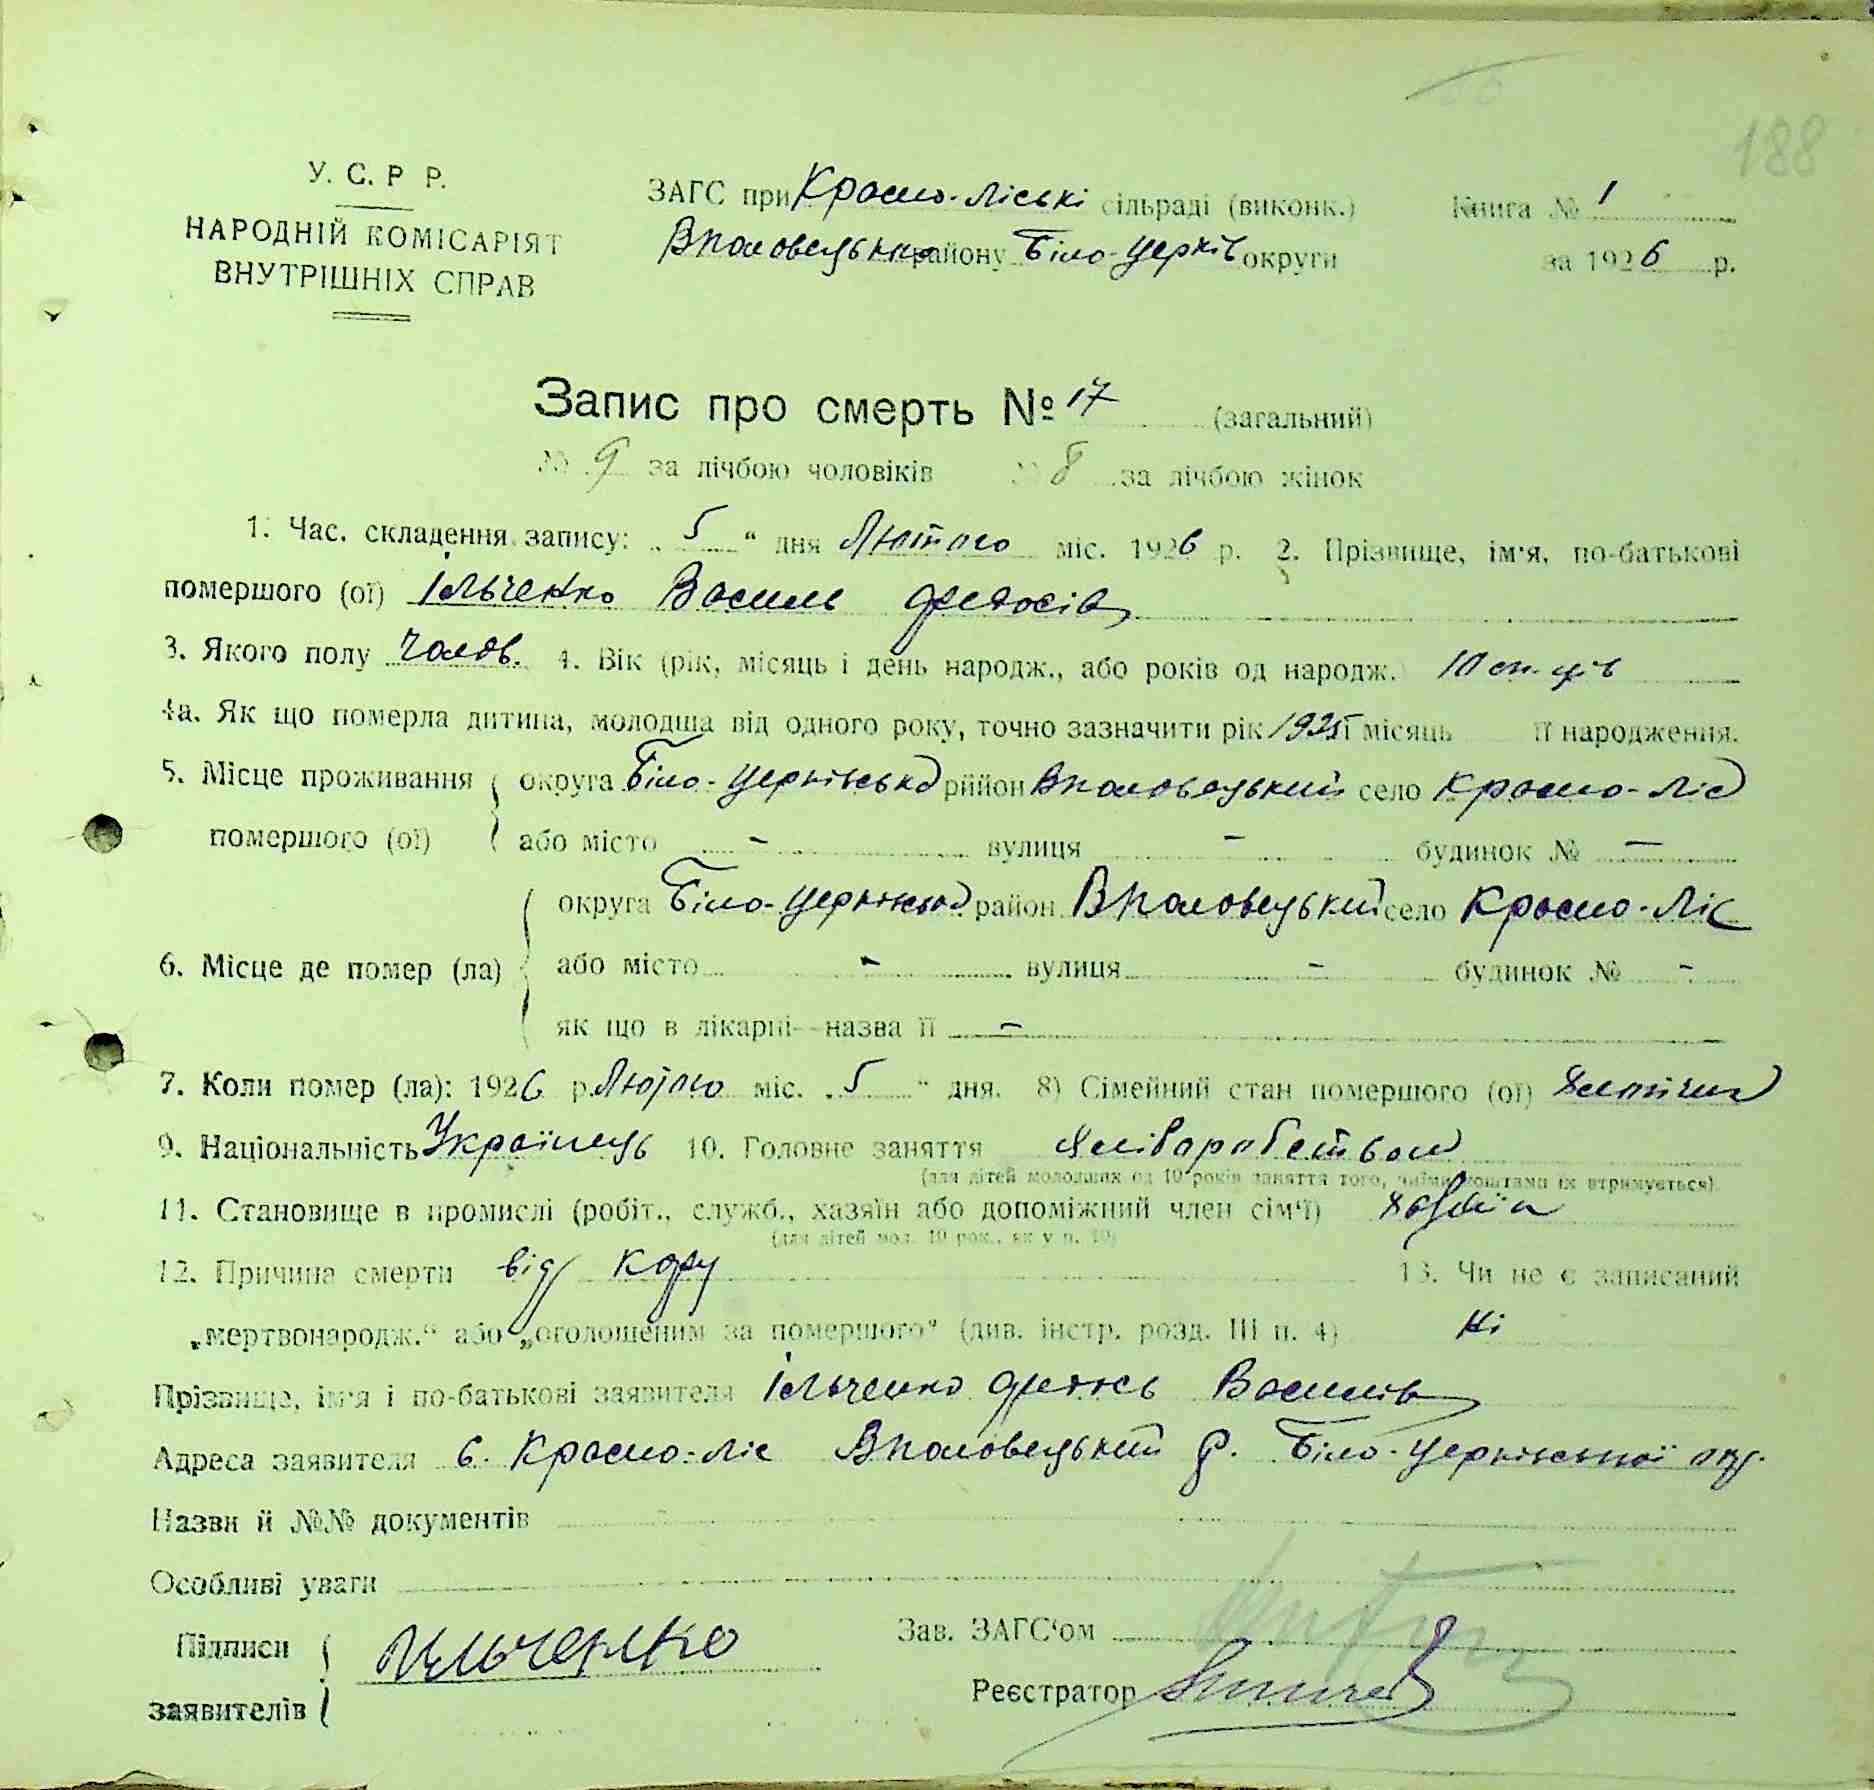 188
У. С. Р Р.
НАРОДНІЙ КОМІСАРІЯТ
ВНУТРІШНІХ СПРАВ
ЗАГС при Красно-Ліські сільраді (виконк.) Книга № 1
району Біло-Церків округи за 1926 р.
Запис про смерть № 17 (загальний)
№ 9 за лічбою чоловіків № 8 за лічбою жінок
1. Час. складення запису: „ 5 “ дня Лютого міс. 1926 р. 2. Прізвище, ім'я, по-батькові
помершого (ої) Ільченко Василь Федосів
3. Якого полу Чолов. 4. Вік (рік, місяць і день народж., або років од народж.) 10 м-ців
4а. Як що померла дитина, молодша від одного року, точно зазначити рік 1925 місяць її народження.
5. Місце проживання округа Біло-Церківська рийон село Красно-Ліс
помершого (ої) або місто - вулиця - будинок № -
округа Біло-Церківська район село Красно-Ліс
6. Місце де помер (ла) або місто - вулиця - будинок № -
як що в лікарні--назва її -
7. Коли помер (ла): 1926 р. Лютого міс. „ 5 “ дня. 8) Сімейний стан помершого (ої)
9. Національність Українець 10. Головне заняття хліборобством
(для дітей молодших од 10 років заняття того, чиїми коштами їх втримується).
11. Становище в промислі (робіт., служб., хазяїн або допоміжний член сім'ї) хазяїн
(для дітей мол. 10 рок., як у п. 10)
12. Причина смерти від кору 13. Чи не є записаний
„мертвонародж.“ або „оголошеним за помершого“ (див. інстр. розд. III п. 4) Ні
Прізвище, ім'я і по-батькові заявителя Ільченко Федось Василів
Адреса заявителя с. Красно-Ліс р. Біло-Церківської окр.
Назви й №№ документів
Особливі уваги
Підписи Ильченко Зав. ЗАГС'ом
заявителів Реєстратор